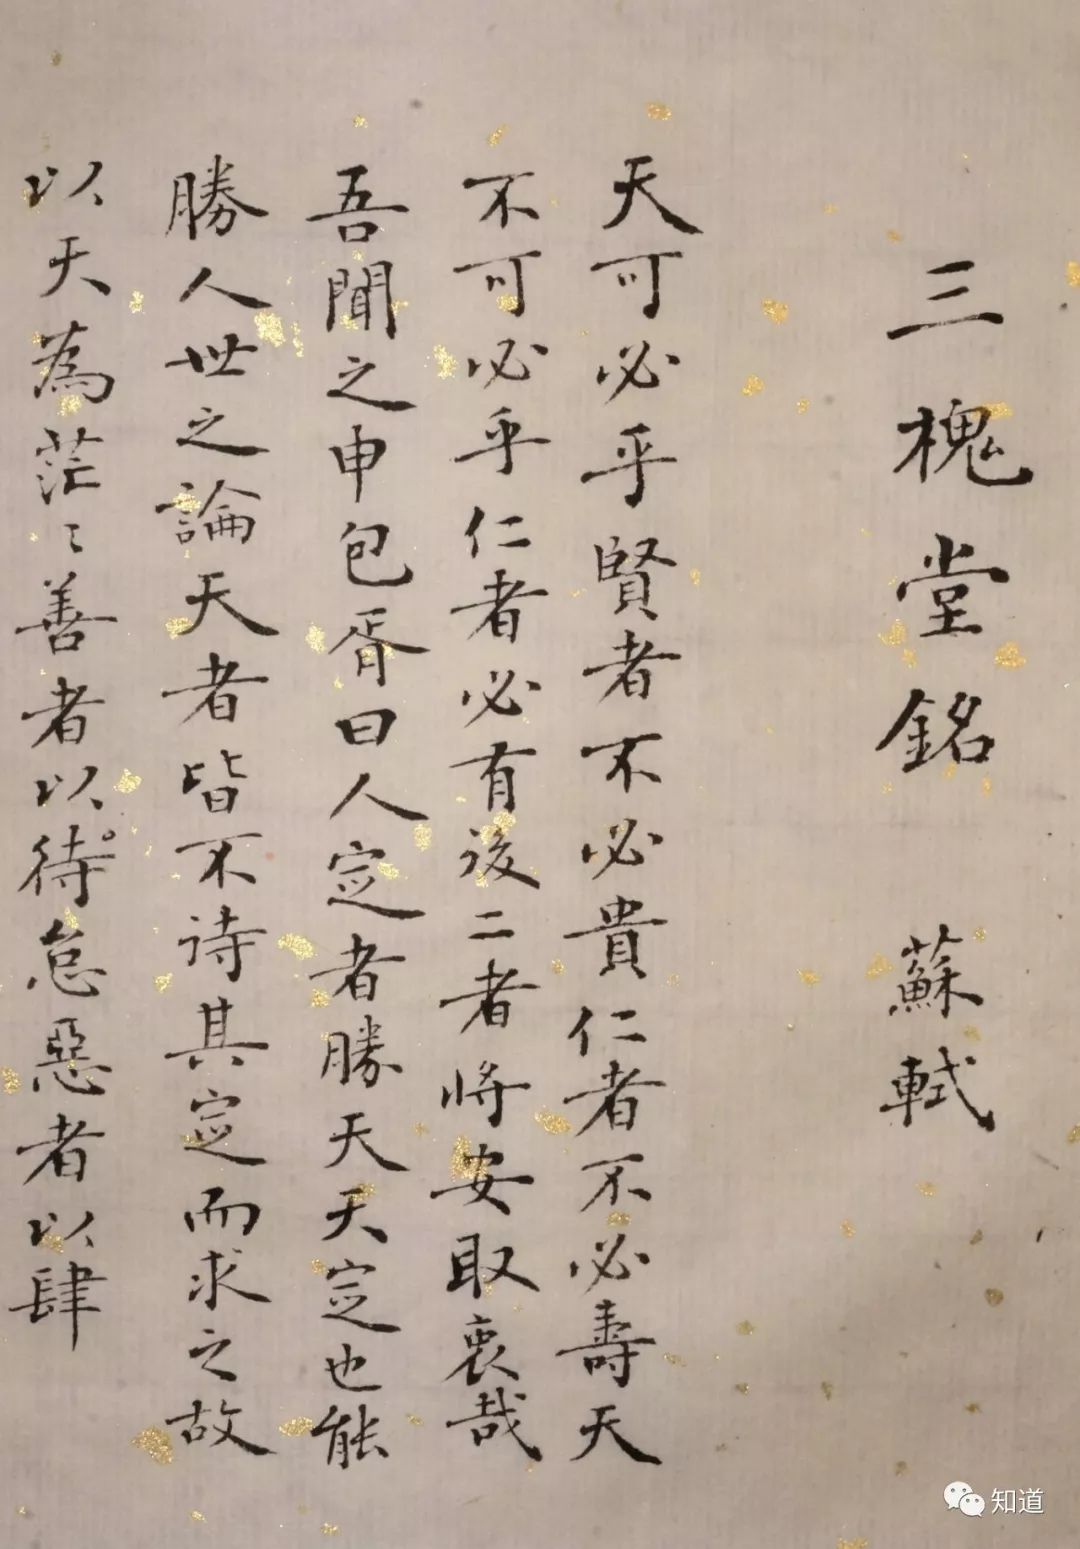 三槐堂銘 蘇軾
天可必乎賢者不必貴仁者不必壽天
不可必乎仁者必有後二者將安取衷哉
吾聞之申包胥曰人定者勝天天定也能
勝人世之論天者皆不待其定而求之故
以天為茫〻善者以待怠惡者以肆
知道